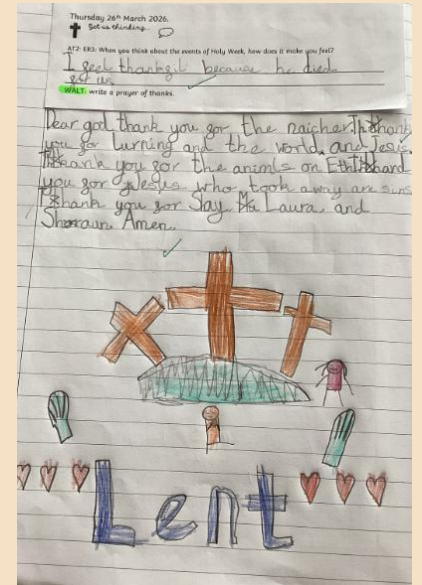 Thursday 26th March 2026.
Get us thinking...
AT2: ER3: When you think about the events of Holy Week, how does it make you feel?
I feel thankful because he died
for us
WALT: write a prayer of thanks.
Dear god thank you for the naicher. thank
you for lurning and the world, and Jesis.
thank you for the animls on Eth
you for Jesus who took away are sins
thank you for Slay, Ms Laura, and
Amen.
Lent